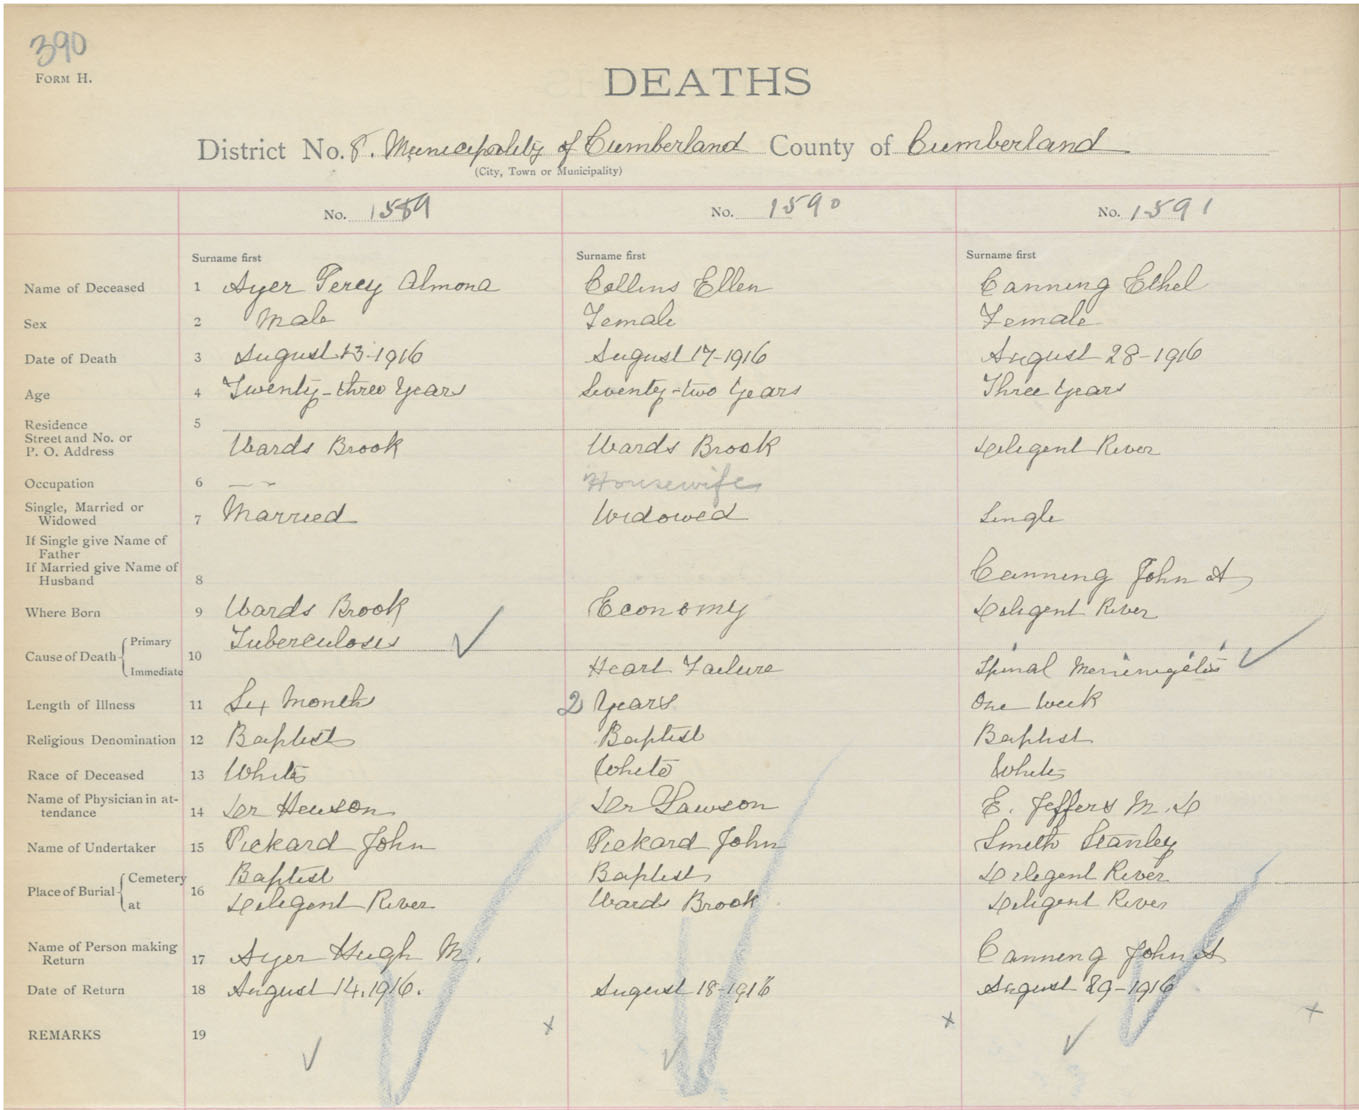 390
FORM H.
DEATHS
District No. 8. Municipality of Cumberland County of Cumberland
(City, Town or Municipality)
No. 1589 No. 1590 No. 1591
Surname first Surname first Surname first
Name of Deceased 1 Ayer Percy Almona Collins Ellen Canning Ethel
Sex 2 Male Female Female
Date of Death 3 August 13-1916 August 17-1916 August 28-1916
Age 4 Twenty-three Years Seventy-two Years Three Years
Residence 5
Street and No. or
P. O. Address Wards Brook Wards Brook Deligent River
Occupation 6 — ~ Housewife
Single, Married or
Widowed 7 Married Widowed Single
If Single give Name of
Father
If Married give Name of
Husband 8 Canning John A
Where Born 9 Wards Brook Economy Deligent River
Cause of Death { Primary 10 Tuberculosis
Immediate Heart Failure Spinal Meninigitis
Length of Illness 11 Six Months 2 Years One Week
Religious Denomination 12 Baptist Baptist Baptist
Race of Deceased 13 White White White
Name of Physician in at-
tendance 14 Dr Hewson Dr Lawson E. Jeffers M.D
Name of Undertaker 15 Pickard John Pickard John Smith Stanley
Place of Burial { Cemetery 16 Baptist Baptist Deligent River
at Deligent River Wards Brook Deligent River
Name of Person making
Return 17 Ayer Hugh M. Canning John A
Date of Return 18 August 14.1916. August 18-1916 August 29-1916
REMARKS 19